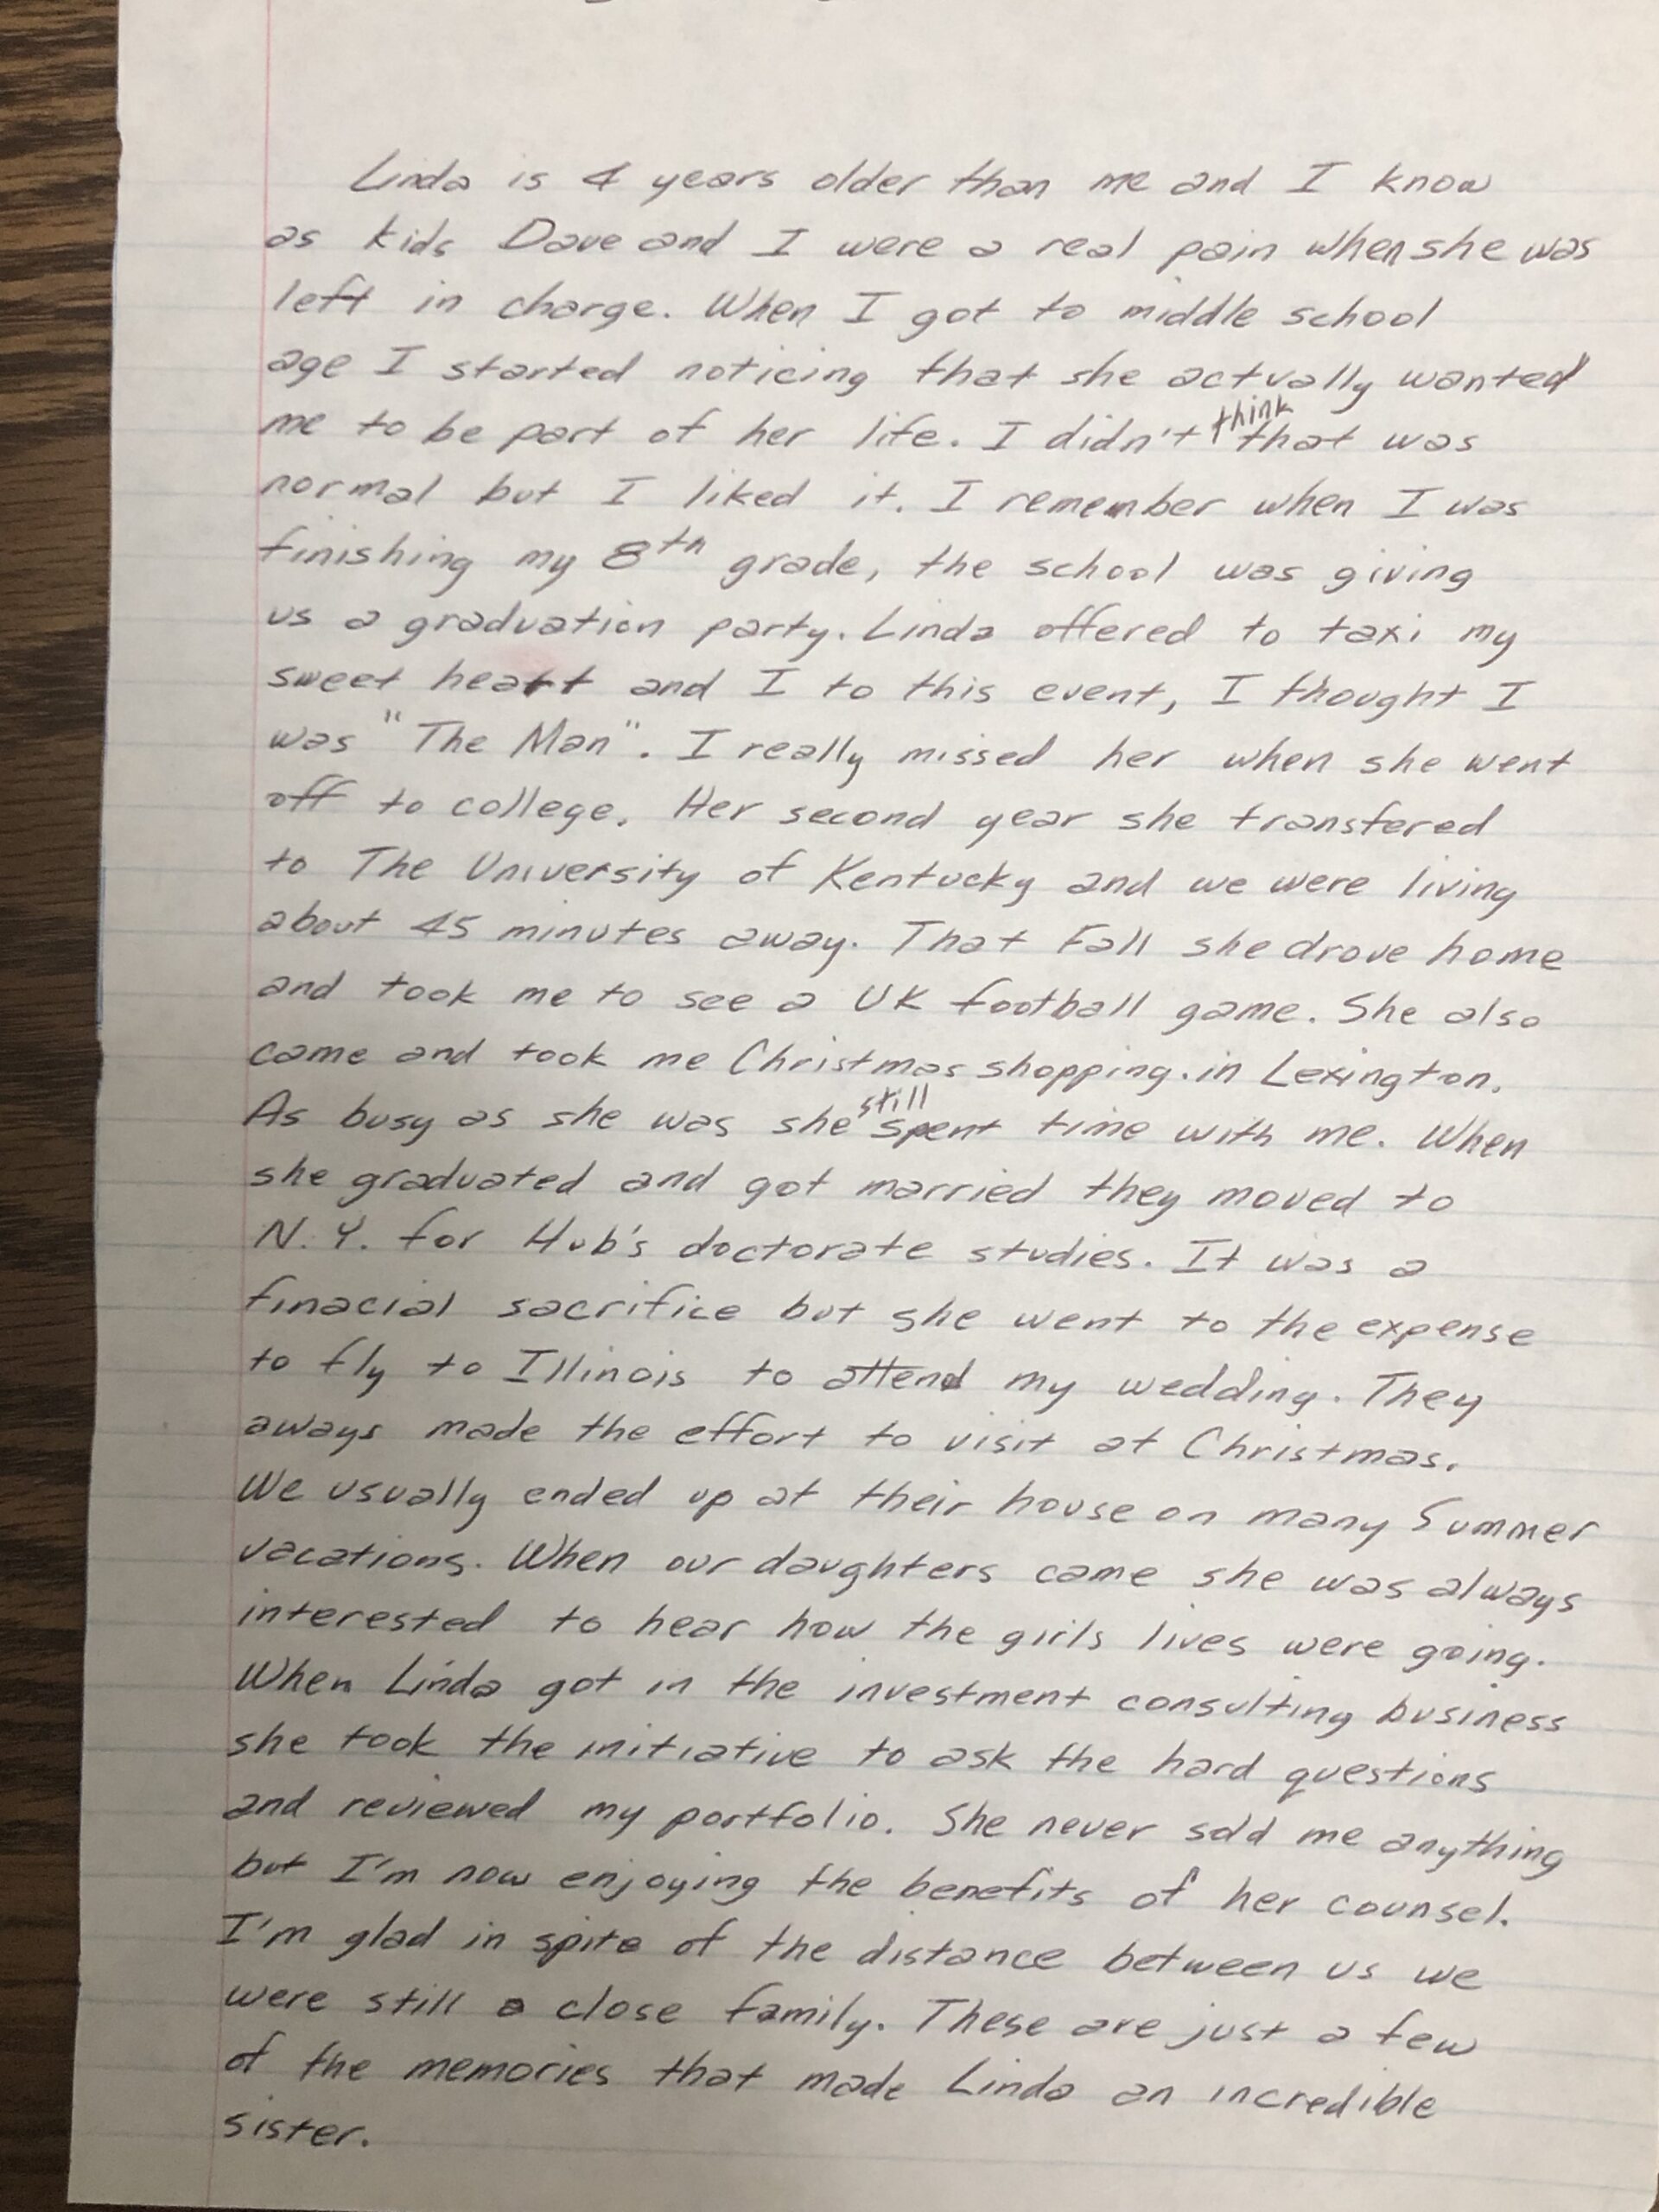 Linda is 4 years older than me and I know
as kids Dave and I were a real pain when she was
left in charge. When I got to middle school
age I started noticing that she actually wanted
me to be part of her life. I didn't think that was
normal but I liked it. I remember when I was
finishing my 8th grade, the school was giving
us a graduation party. Linda offered to taxi my
sweet heart and I to this event, I thought I
was "The Man". I really missed her when she went
off to college. Her second year she transfered
to The University of Kentucky and we were living
about 45 minutes away. That Fall she drove home
and took me to see a UK football game. She also
came and took me Christmas shopping. in Lexington.
As busy as she was she still spent time with me. When
she graduated and got married they moved to
N.Y. for Hub's doctorate studies. It was a
finacial sacrifice but she went to the expense
to fly to Illinois to attend my wedding. They
aways made the effort to visit at Christmas.
We usually ended up at their house on many Summer
vacations. When our daughters came she was always
interested to hear how the girls lives were going.
When Linda got in the investment consulting business
she took the initiative to ask the hard questions
and reviewed my portfolio. She never sold me anything
but I'm now enjoying the benefits of her counsel.
I'm glad in spite of the distance between us we
were still a close family. These are just a few
of the memories that made Linda an incredible
sister.